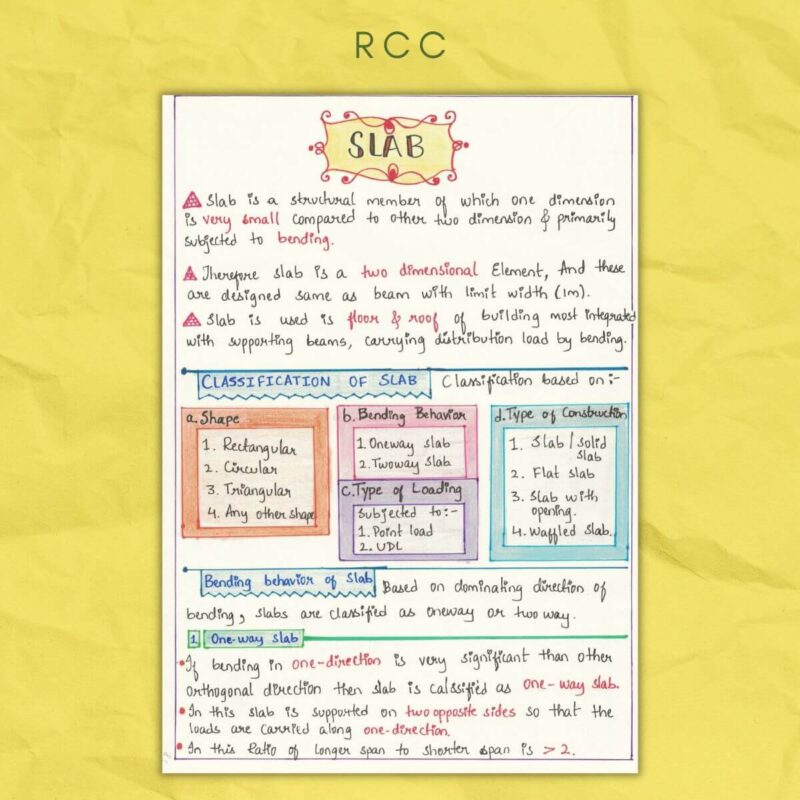 RCC
SLAB
Slab is a structural member of which one dimension
is very small compared to other two dimension & primarily
subjected to bending.
Therefore slab is a two dimensional Element, And these
are designed same as beam with limit width (1m).
Slab is used is floor & roof of building most integrated
with supporting beams, carrying distribution load by bending.
CLASSIFICATION OF SLAB Classification based on :-
a. Shape
1. Rectangular
2. Circular
3. Triangular
4. Any other shape
b. Bending Behavior
1. Oneway slab
2. Twoway slab
c. Type of Loading
Subjected to:-
1. Point load
2. UDL
d. Type of Construction
1. Slab / Solid
slab
2. Flat slab
3. Slab with
opening.
4. Waffled slab.
Bending behavior of Slab Based on dominating direction of
bending, slabs are classified as oneway or two way.
1 One-way slab
• If bending in one-direction is very significant than other
orthogonal direction then slab is calssified as one-way slab.
• In this slab is supported on two opposite sides so that the
loads are carried along one-direction.
• In this Ratio of longer span to shorter span is > 2.